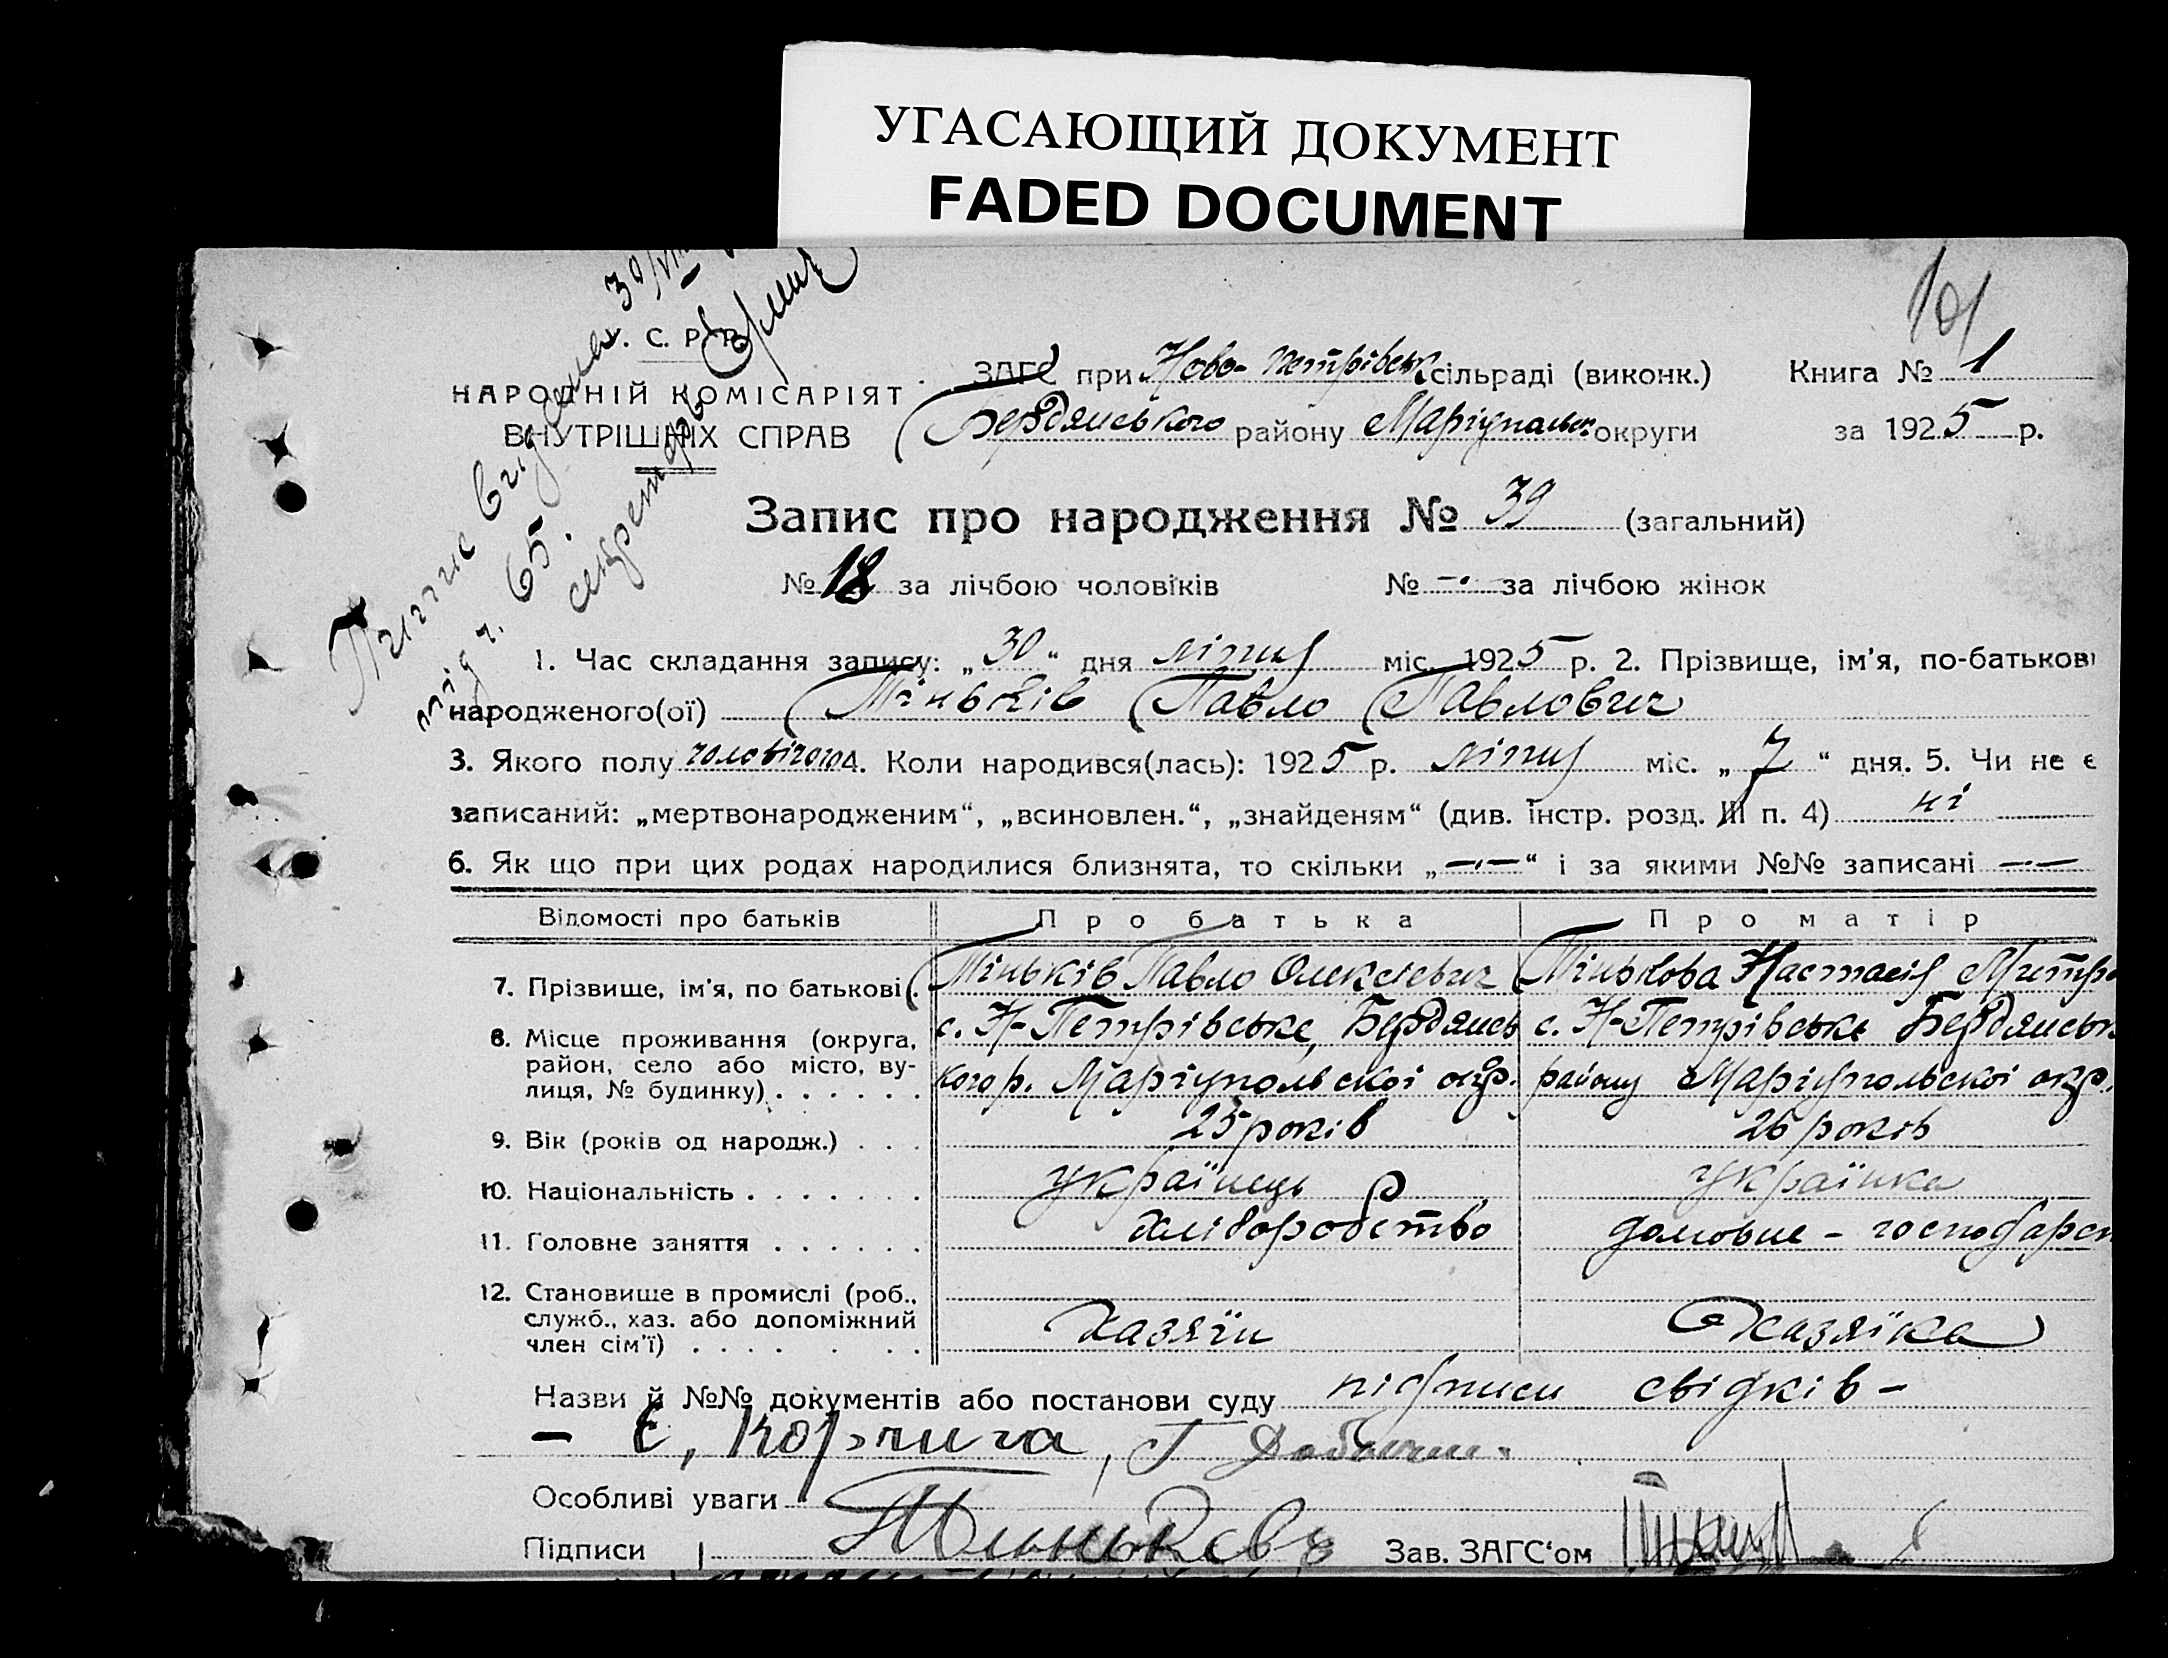 УГАСАЮЩИЙ ДОКУМЕНТ
FADED DOCUMENT
У. С. Р. Р.
НАРОДНІЙ КОМІСАРІЯТ
ВНУТРІШНІХ СПРАВ
101
ЗАГС при Ново-Петрівськ сільраді (виконк.) Книга № 1
Бердянського району Маріупольск округи за 1925 р.
секретарь
під ч. 65.
Запис про народження № 39 (загальний)
№ 18 за лічбою чоловіків № —·— за лічбою жінок
1. Час складання запису: „30“ дня липня міс. 1925 р. 2. Прізвище, ім'я, по-батькові
народженого(ої) Тіньків Павло Павлович
3. Якого полу чоловічого 4. Коли народився(лась): 1925 р. липня міс. „7“ дня. 5. Чи не є
записаний: „мертвонародженим“, „всиновлен.“, „знайденям“ (див. інстр. розд. III п. 4) ні
6. Як що при цих родах народилися близнята, то скільки „—·—“ і за якими №№ записані —·—
Відомості про батьків Про батька Про матір
7. Прізвище, ім'я, по батькові. Тіньків Павло Олексієвич Тінькова Настасія Митро
8. Місце проживання (округа, район, село або місто, вулиця, № будинку) . . . . . .
с. Н-Петрівське, Бердянсь кого р. Маріупольскоі окр.
с. Н-Петрівське Бердянськ району Маріупольскоі окр.
9. Вік (років од народж.) . . . 25 років 26 років
10. Національність . . . . . . . українець українка
11. Головне заняття . . . . . . хліборобство домовне - господарст
12. Становище в промислі (роб., служб., хаз. або допоміжний член сім'ї) . . . . . . .
хазяїн хазяїка
Назви й №№ документів або постанови суду підписи свідків -
- Є, Корчига, Г
Особливі уваги
Підписи Зав. ЗАГС'ом